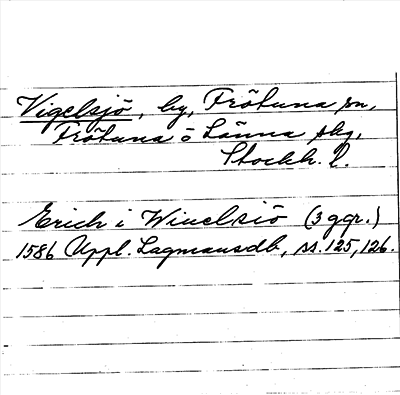 Vigelsjö, by, Frötuna sn,
Frötuna o Länna skg,
Stockh. l.
Erich i Winelsiö (3 ggr.)
1586 Uppl. Lagmansdb, ss. 125, 126.